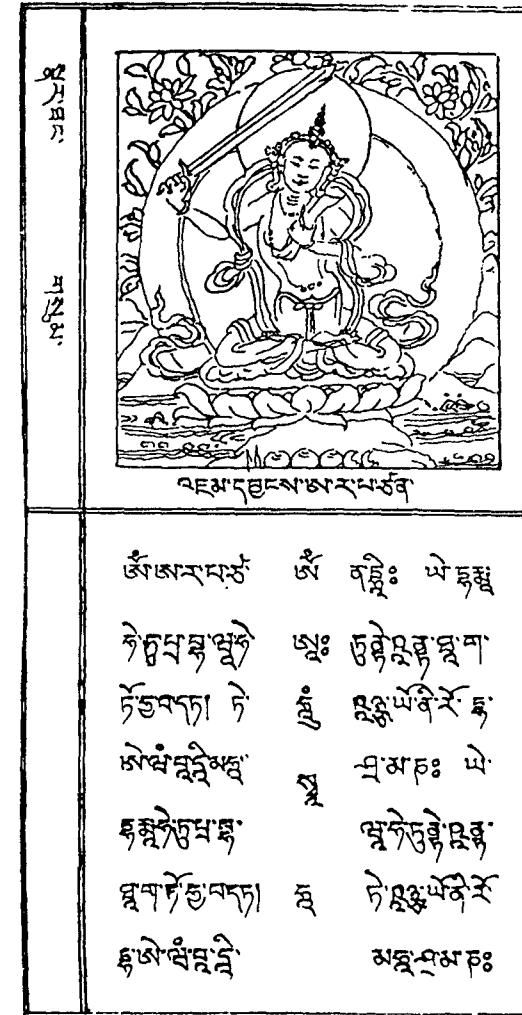 གསུམ་
འཇམ་དབྱངས་ཨ་ར་པ་ཙན་
ཨོཾ་ཨ་ར་པ་ཙ་ ཨོཾ་ ན་དྷཱིཿ ཡེ་དྷརྨཱ
ཧེ་ཏུ་པྲ་བྷ་ཝཱ་ཧེ ཨཱཿ ཏུནྟེ་ཥཱནྟ་ཐཱ་ག་
ཏོ་ཧྱ་བདཏ། ཏེ་ ཧཱུྃ ཥཱཉྩ་ཡོ་ནི་རོ་དྷ་
ཨེ་ཝཾ་བཱ་དཱི་མཧཱ་ སྭཱ ཤྲ་མ་ཎཿ ཡེ་
དྷརྨཱ་ཧེ་ཏུ་པྲ་བྷ་ ཝཱ་ཧེ་ཏུནྟེ་ཥཱནྟ་
ཐཱ་ག་ཏོ་ཧྱ་བདཏ། ཧཱ ཏེ་ཥཱཉྩ་ཡོ་ནི་རོ
དྷ་ཨེ་ཝཾ་བཱ་དཱི་ མཧཱ་ཤྲ་མ་ཎཿ